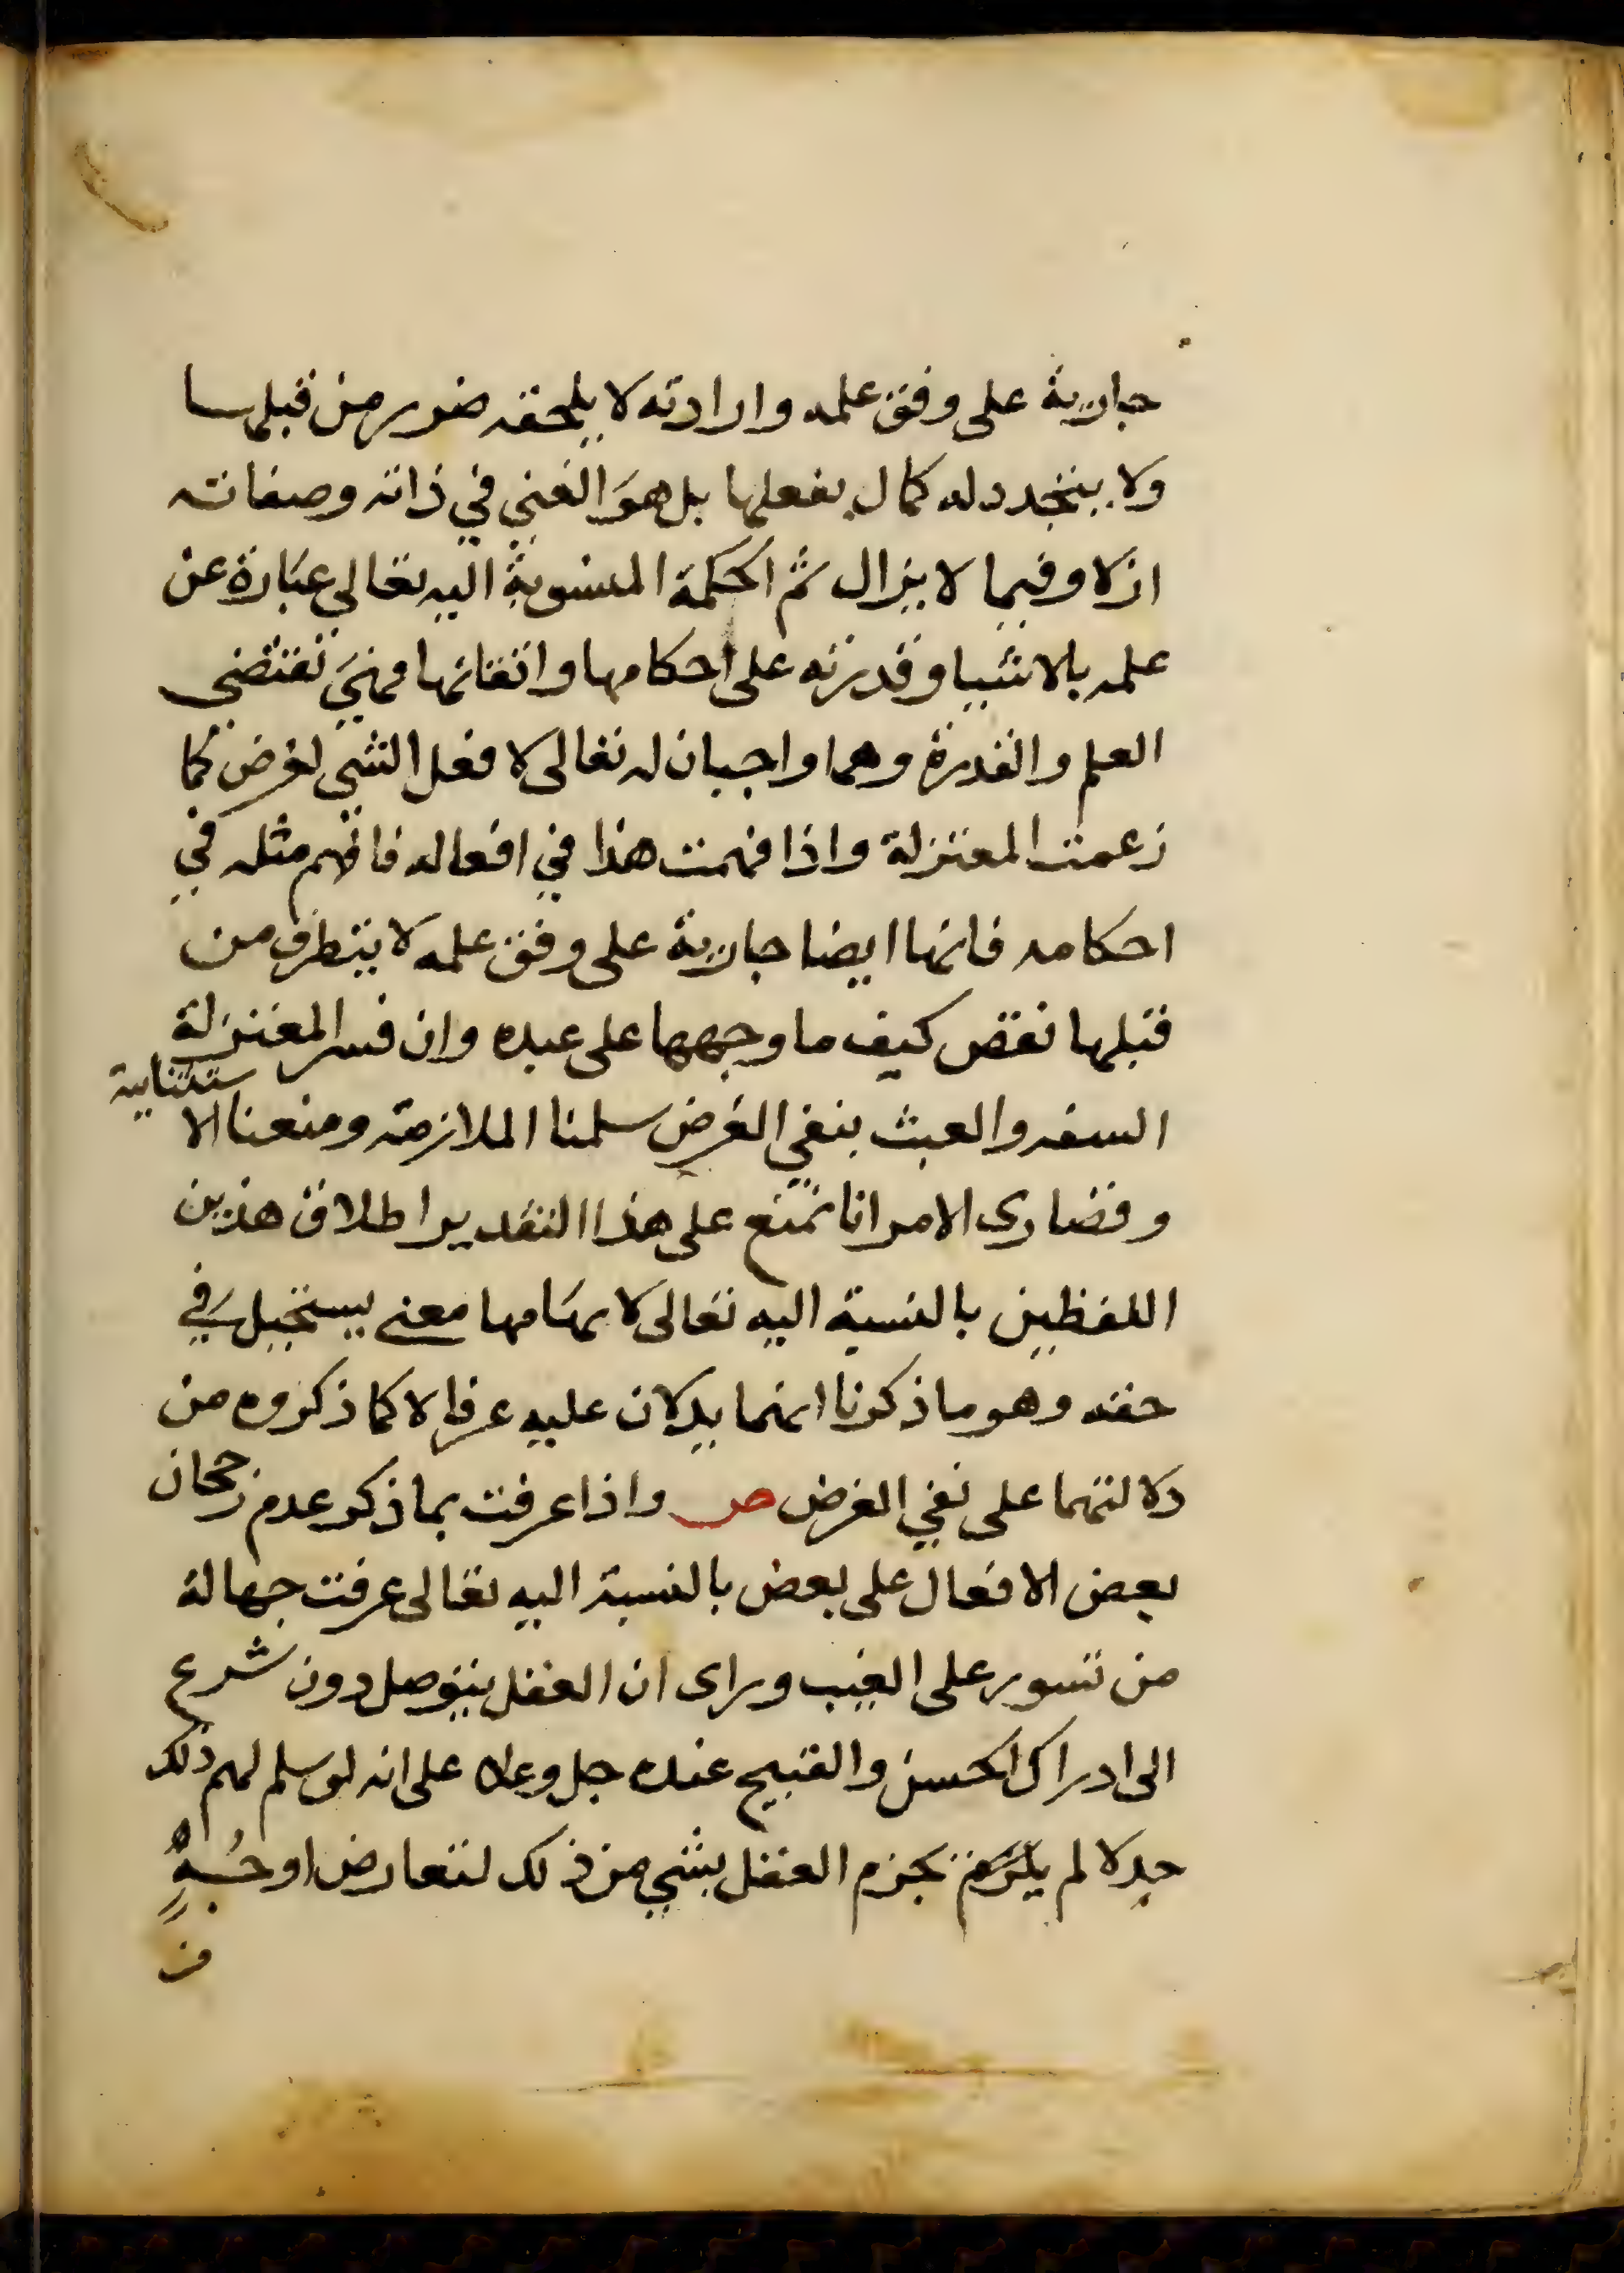 جارية على وفق علمه وارادته لا يلحقه ضرر من قبلها
ولا يتجدد له كمال بفعلها بل هو الغني في ذاته وصفاته
ازلا وفيما لا يزال ثم الحكمة المنسوبة اليه تعالى عبارة عن
علمه بالاشيا وقدرته على احكامها واتقانها فهي تقتضي
العلم والقدرة وهما واجبان له تعالى لا فعل الشي لغرض كما
زعمت المعتزلة واذا فهمت هذا في افعاله فافهم مثله في
احكامه فانها ايضا جارية على وفق علمه لا يتطرق من
قبلها نقص كيف ما وجهها على عبده وان فسر المعتزلة
السفه والعبث بنفي الغرض سلمنا الملازمة ومنعنا الا ستثنايية
وقصارى الامر انا نمنع على هذا التقدير اطلاق هذين
اللفظين بالنسبة اليه تعالى لايهامها معنى يستحيل في
حقه وهو ما ذكرنا انهما يدلان عليه عرفا لا كما ذكروه من
دلالتهما على نفي الغرض ص واذا عرفت بما ذكر عدم رجحان
بعض الافعال على بعض بالنسبة اليه تعالى عرفت جهالة
من تسور على الغيب وراى ان العقل يتوصل دون شرع
الى ادراك الحسن والقبيح عنده جل وعلا على انه لو سلم لهم ذلك
جدلا لم يلزم جزم العقل بشي من ذلك لتعارض اوجه
من